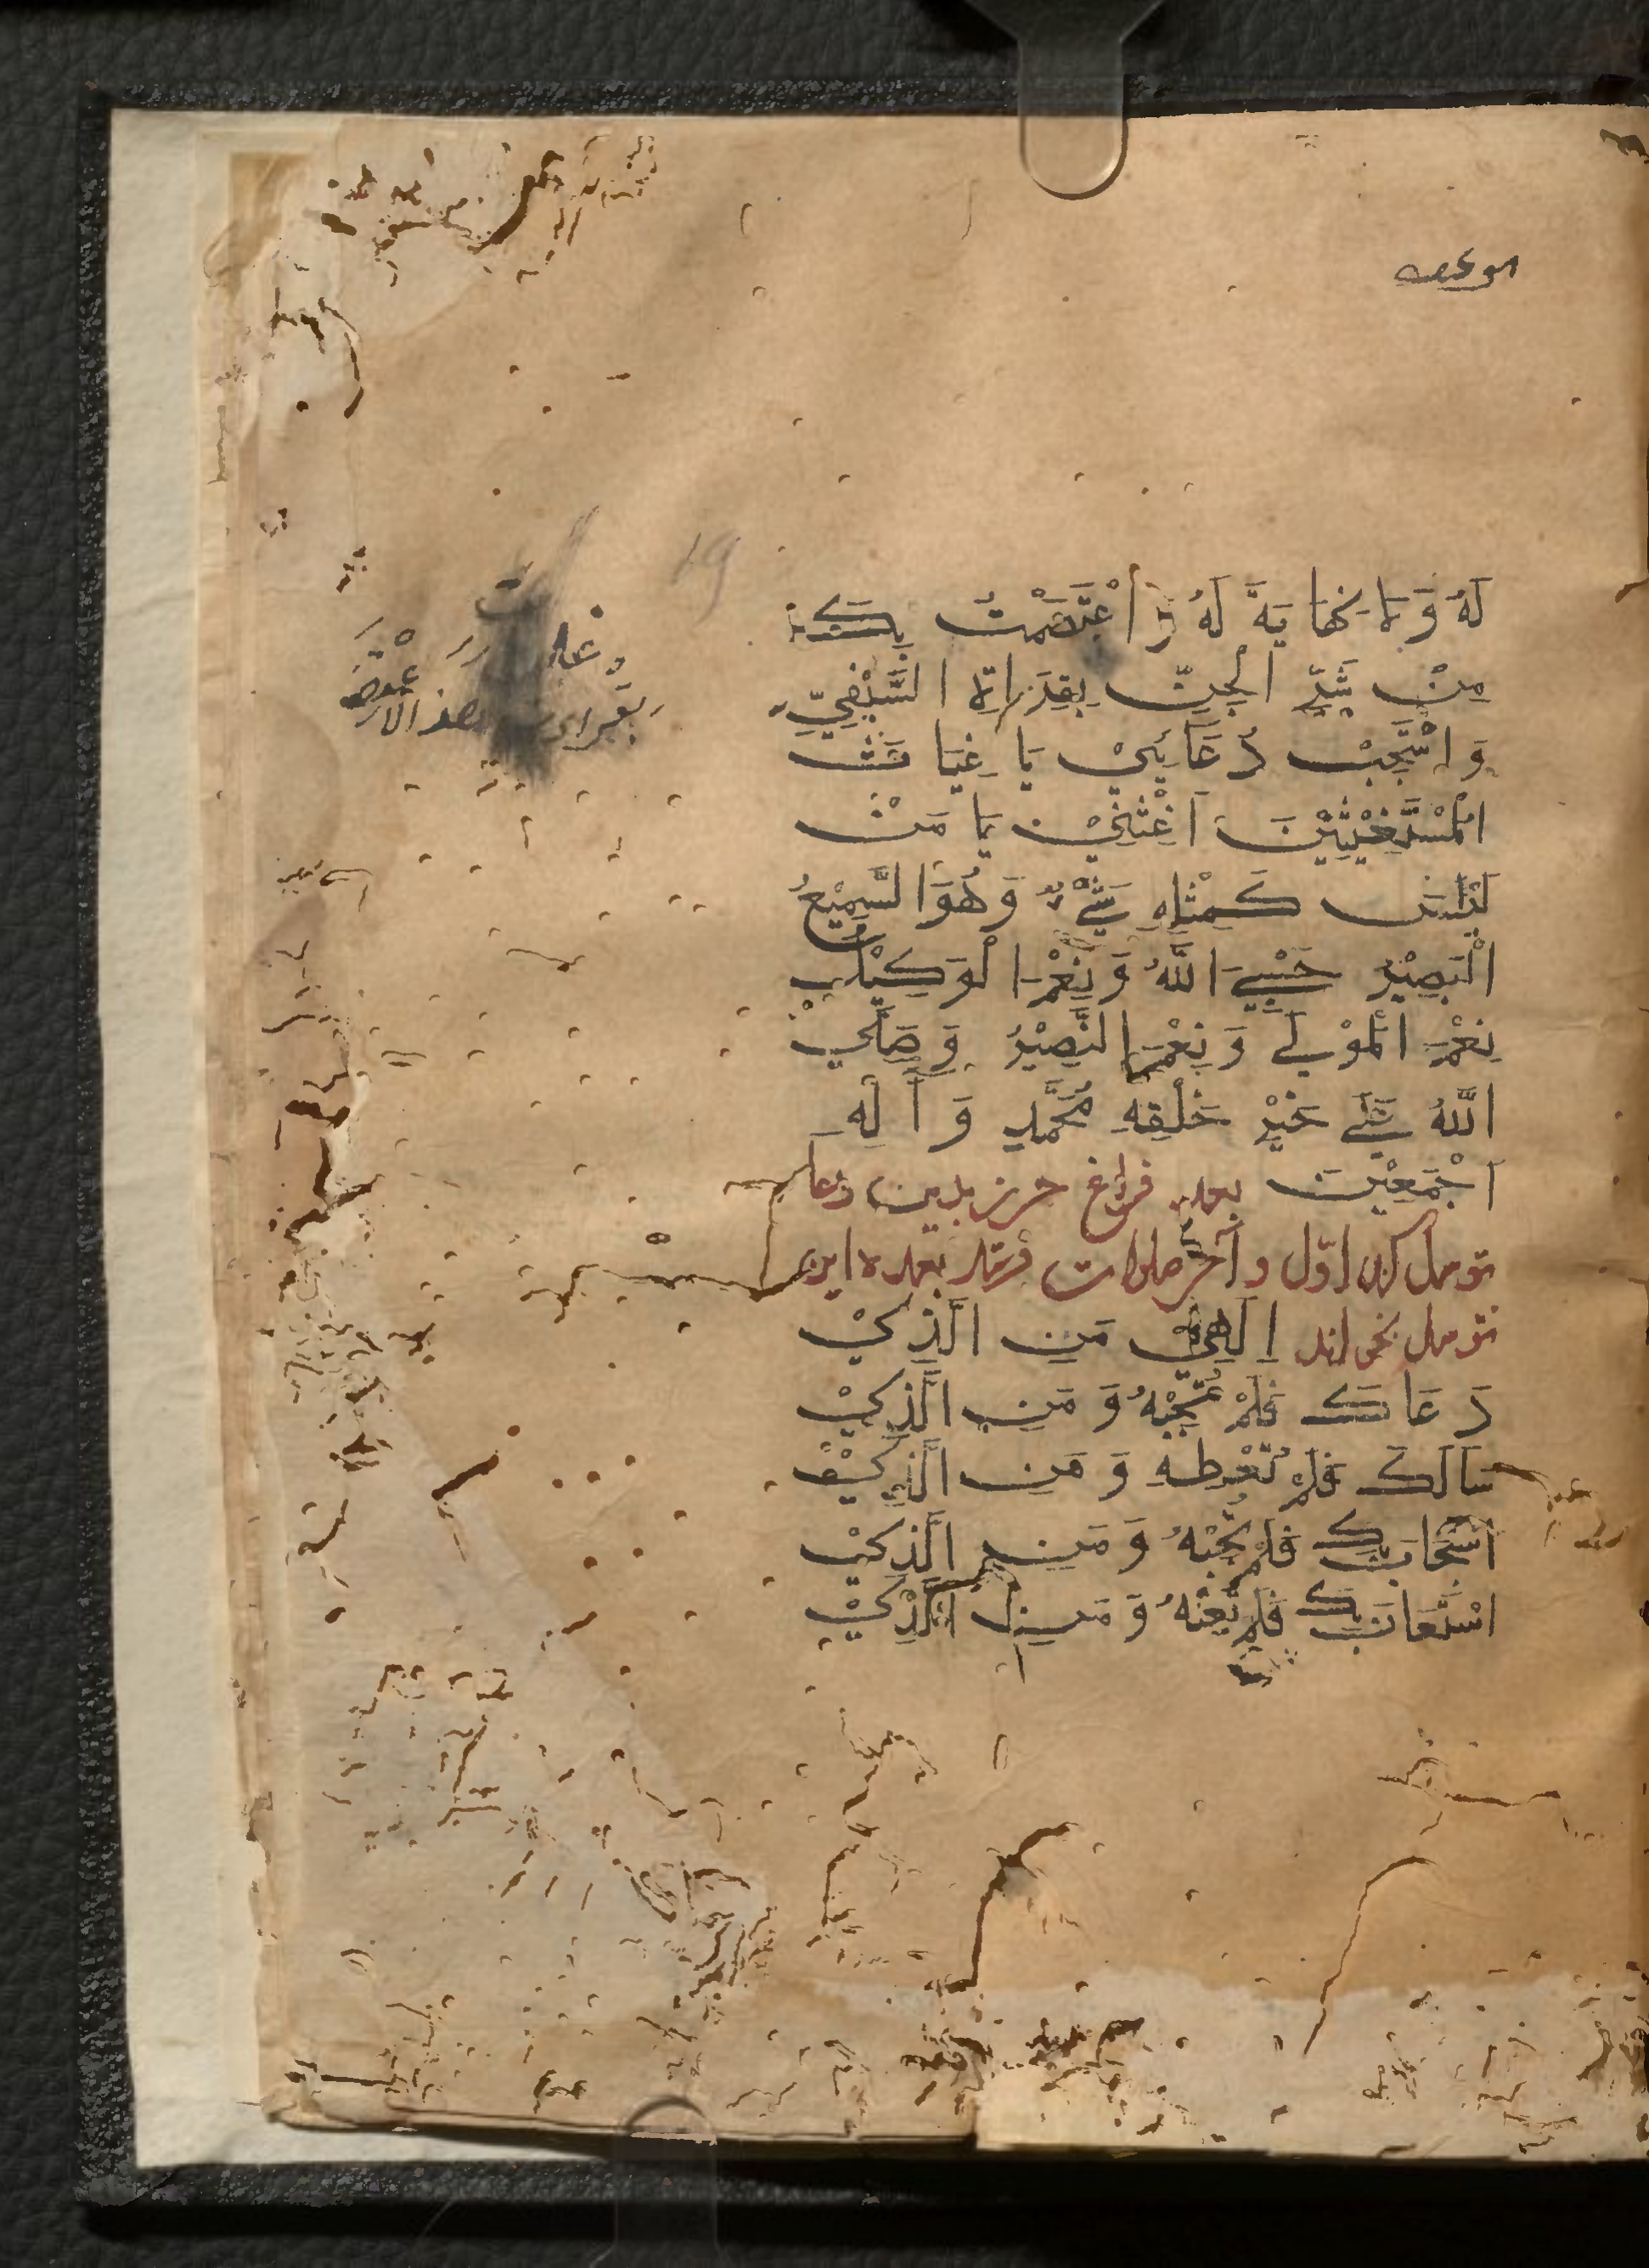 لَهُ وَلَا نِهَايَةَ لَهُ وَاَعْتَصَمْتُ بِكَ
مِنْ شَرِّ الْجِنِّ
وَاسْتَجِبْ دُعَائِيْ يَا غِيَاثَ
الْمُسْتَغِيْثِيْنَ اَغِثْنِيْ يَا مَنْ
لَيْسَ كَمِثْلِهِ شَيْءٌ وَهُوَ السَّمِيْعُ
الْبَصِيْرُ حَسْبِيَ اللَّهُ وَنِعْمَ الْوَكِيْلُ
نِعْمَ الْمَوْلَى وَنِعْمَ النَّصِيْرُ وَصَلَّى
اللَّهُ عَلَى خَيْرِ خَلْقِهِ مُحَمَّدٍ وَآلِهِ
اَجْمَعِيْنَ بعد فراغ حرز بدين دعا
توسل كند اوّل و آخر صلوات فرستد بعده اين
توسل بخواند اِلٰهِيْ مَنِ الَّذِيْ
دَعَاكَ فَلَمْ تُجِبْهُ وَمَنِ الَّذِيْ
سَاَلَكَ فَلَمْ تُعْطِهِ وَمَنِ الَّذِيْ
اسْتَجَابَكَ فَلَمْ تُجِبْهُ وَمَنِ الَّذِيْ
اسْتَعَانَ بِكَ فَلَمْ تُعِنْهُ وَمَنِ الَّذِيْ
19